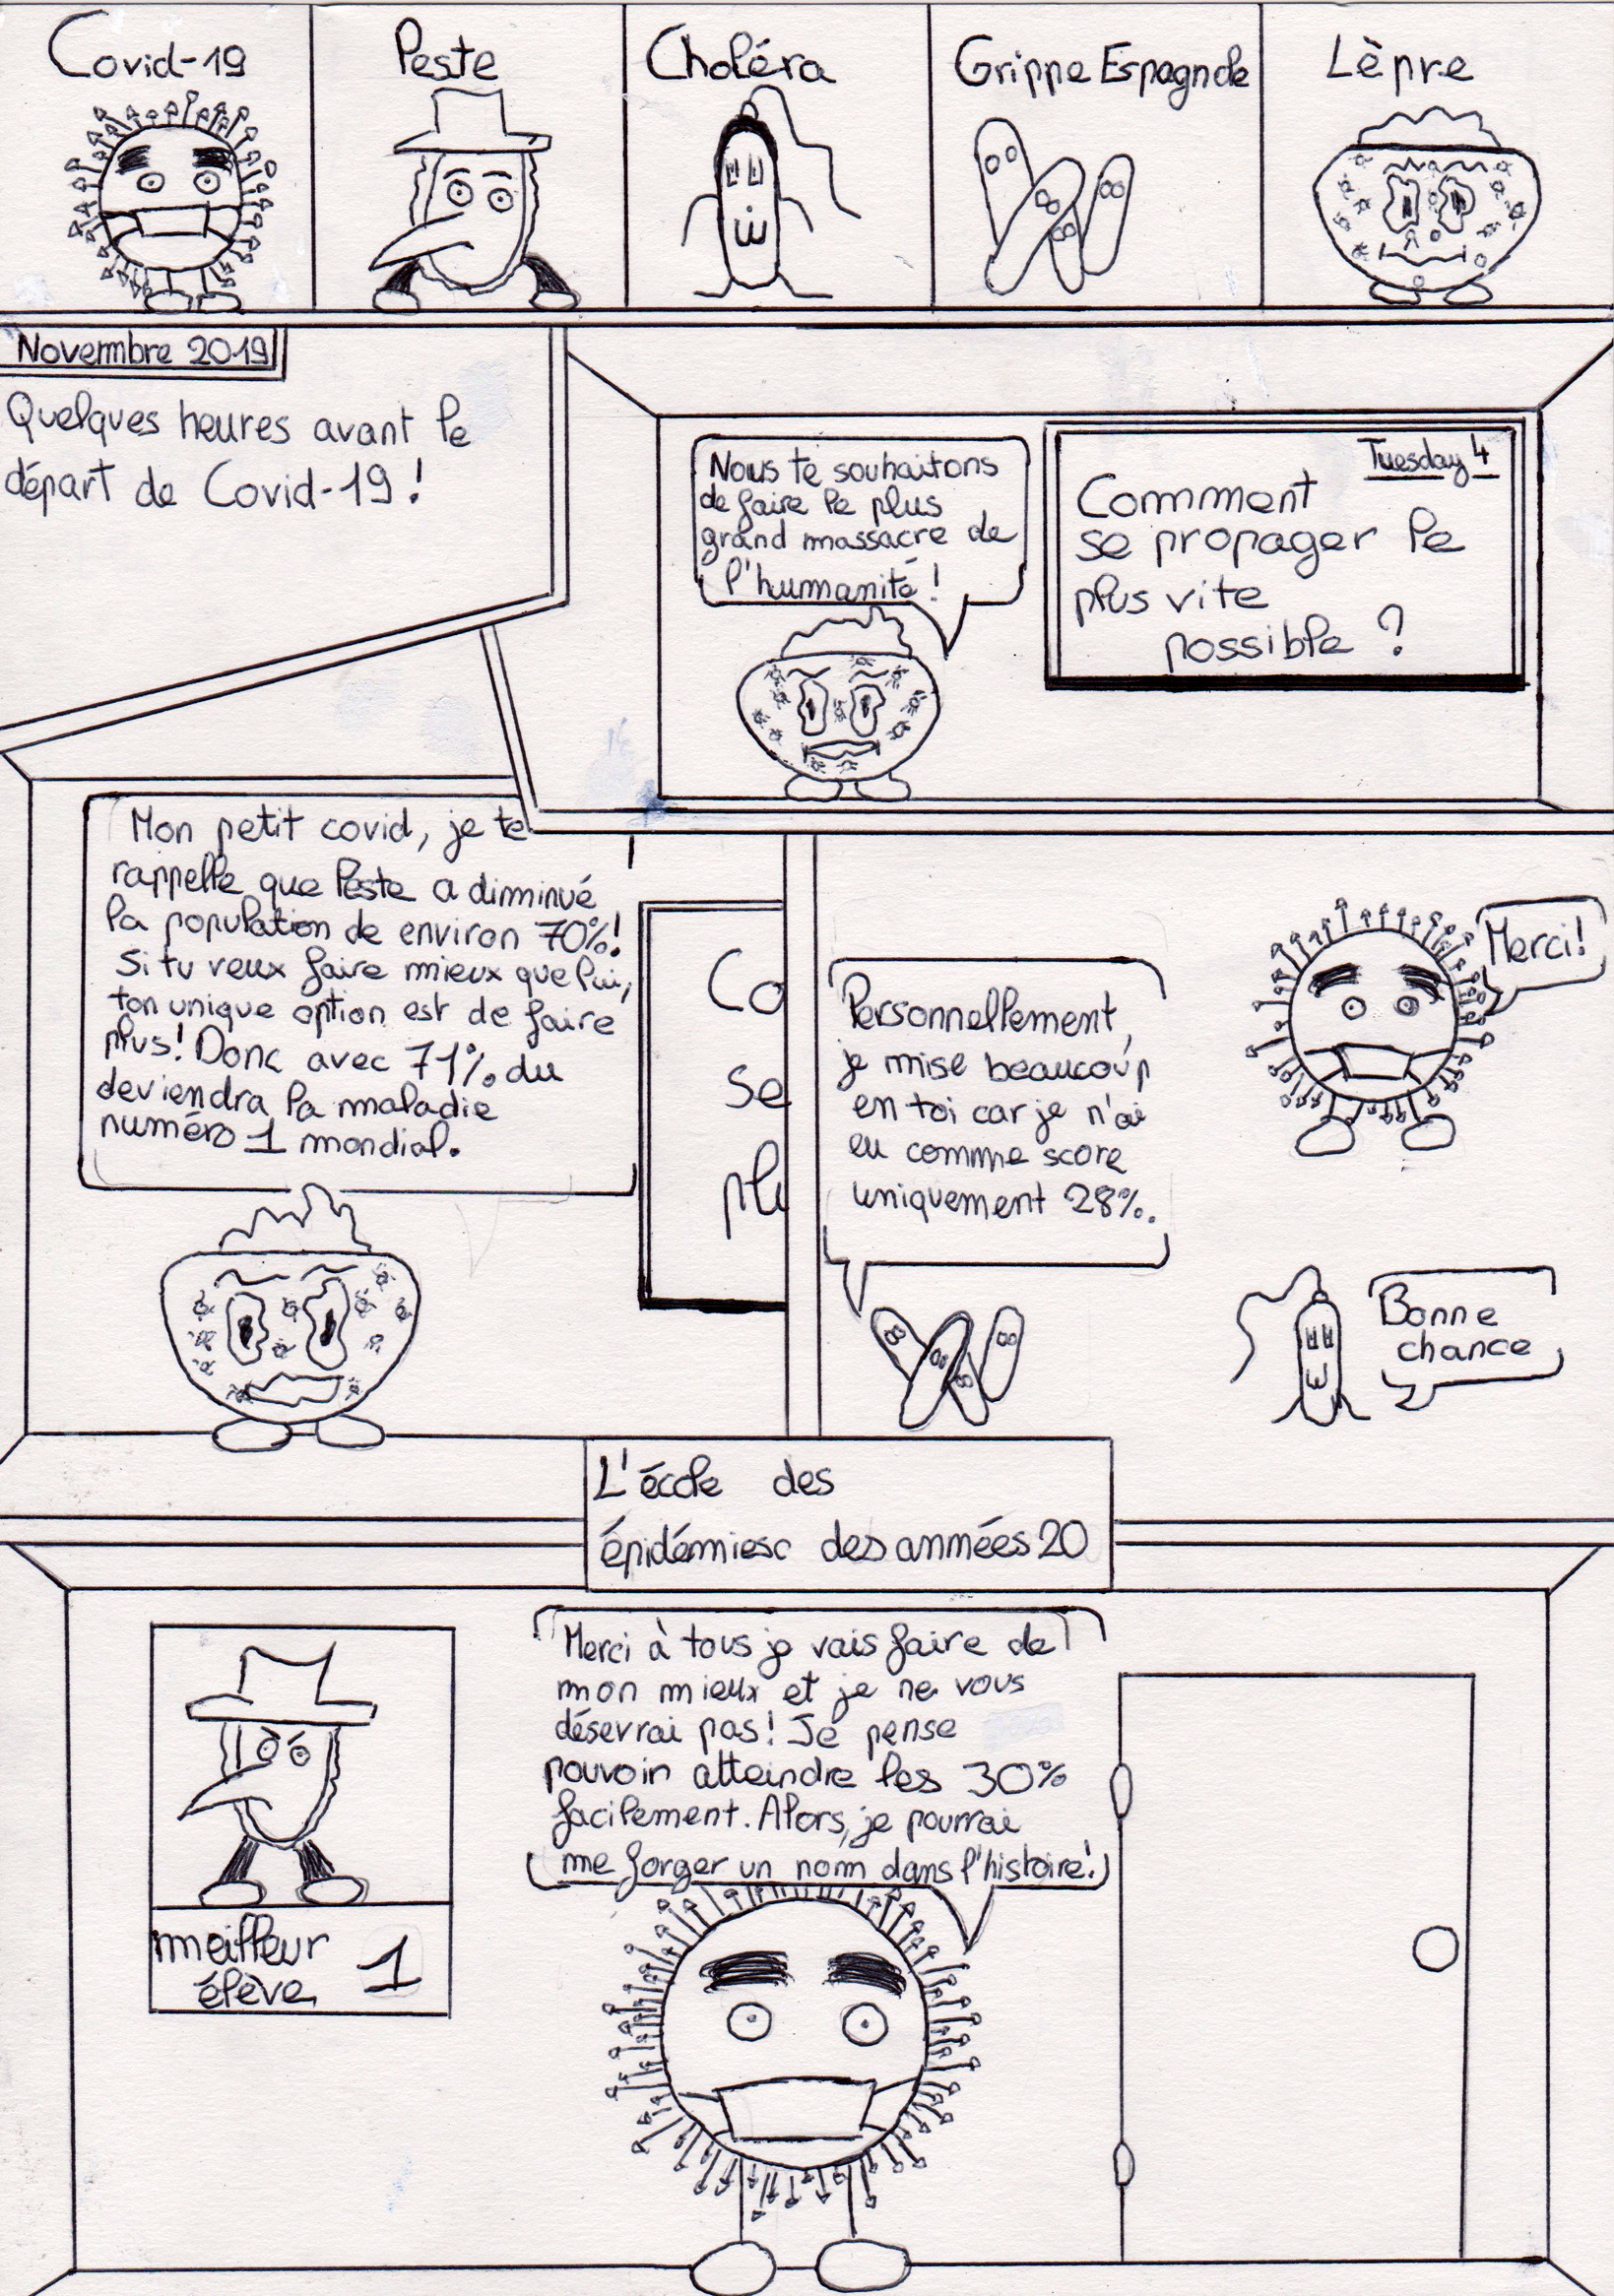 Covid-19
Peste
Choléra
Grippe Espagnole
Lèpre
Novembre 2019
Quelques heures avant le
départ de Covid-19!
Nous te souhaitons
de faire le plus
grand massacre de
l'humanité!
Tuesday 4
Comment
se propager le
plus vite
possible ?
Mon petit covid, je te
rappelle que Peste a diminué
la population de environ 70%!
Si tu veux faire mieux que lui,
ton unique option est de faire
plus! Donc avec 71% du
deviendra la maladie
numéro 1 mondial.
Co
se
plu
Merci!
Personnellement,
je mise beaucoup
en toi car je n'ai
eu comme score
uniquement 28%.
Bonne
chance
L'école des
épidémiesc des années 20
Merci à tous je vais faire de
mon mieux et je ne vous
désevrai pas! Je pense
pouvoir atteindre les 30%
facilement. Alors, je pourrai
me forger un nom dans l'histoire!
meilleur
élève 1